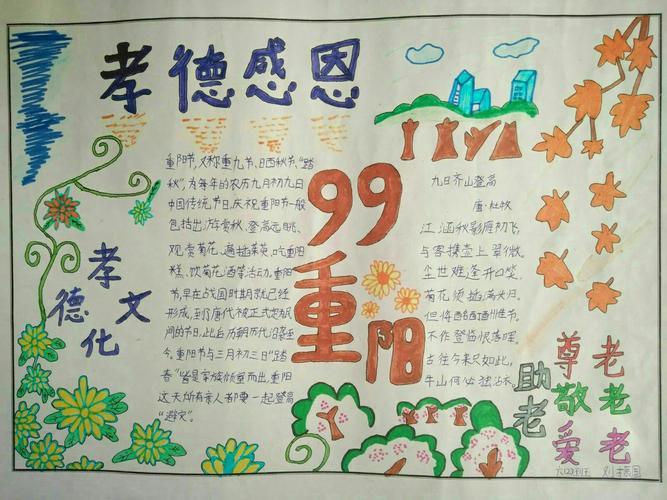 孝德感恩
重阳节,又称重九节、日西秋节、“踏
秋”,为每年的农历九月初九日
中国传统节日。庆祝重阳节一般
包括出游赏秋、登高远眺、
观赏菊花、遍插茱萸、吃重阳
糕、饮菊花酒等活动。重阳
节,早在战国时期就已经
形成,到了唐代被正式定为民
间的节日,此后历朝历代沿袭至
今。重阳节与三月初三日“踏
春”皆是家族倾室而出,重阳
这天所有亲人都要一起登高
“避灾”。
99
重阳
九日齐山登高
唐·杜牧
江涵秋影雁初飞,
与客携壶上翠微。
尘世难逢开口笑,
菊花须插满头归。
但将酩酊酬佳节,
不作登临恨落晖。
古往今来只如此,
牛山何必独沾衣。
孝文
德化
助老
尊敬爱
老老老